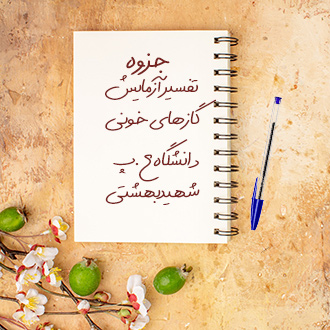 جزوه
تفسیر آزمایش
گازهای خونی
دانشگاه ع.پ
شهید بهشتی